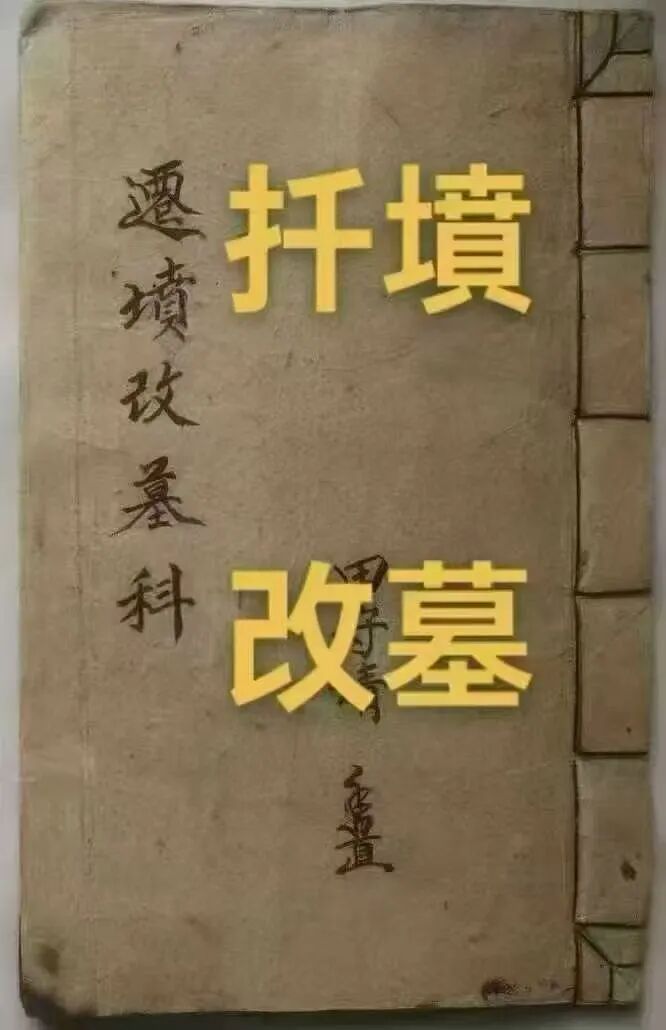 扦墳
改墓
遷墳改墓科